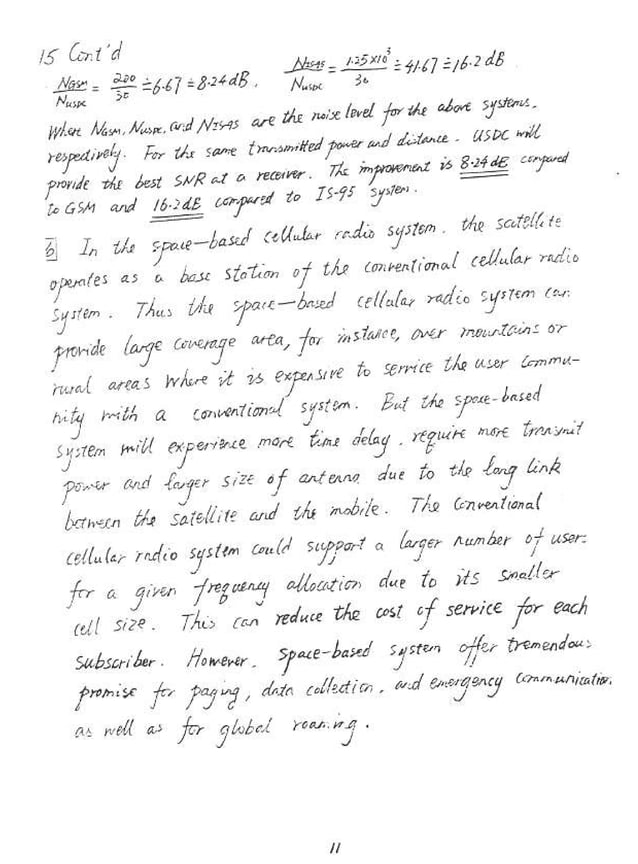 15 Cont'd
N_GSM/N_USDC = 200/30 ≐ 6.67 ≐ 8.24 dB, N_IS95/N_USDC = 1.25×10³/30 ≐ 41.67 ≐ 16.2 dB
Where N_GSM, N_USDC, and N_IS95 are the noise level for the above systems.
respectively. For the same transmitted power and distance. USDC will
provide the best SNR at a receiver. The improvement is 8.24 dB compared
to GSM and 16.2 dB compared to IS-95 system.
6 In the space-based cellular radio system. the satellite
operates as a base station of the conventional cellular radio
system. Thus the space-based cellular radio system can
provide large coverage area, for instance, over mountains or
rural areas where it is expensive to service the user commu-
nity with a conventional system. But the space-based
system will experience more time delay. require more transmit
power and larger size of antenna due to the long link
between the satellite and the mobile. The conventional
cellular radio system could support a larger number of users
for a given frequency allocation due to its smaller
cell size. This can reduce the cost of service for each
subscriber. However. space-based system offer tremendous
promise for paging, data collection, and emergency communication.
as well as for global roaming.
11